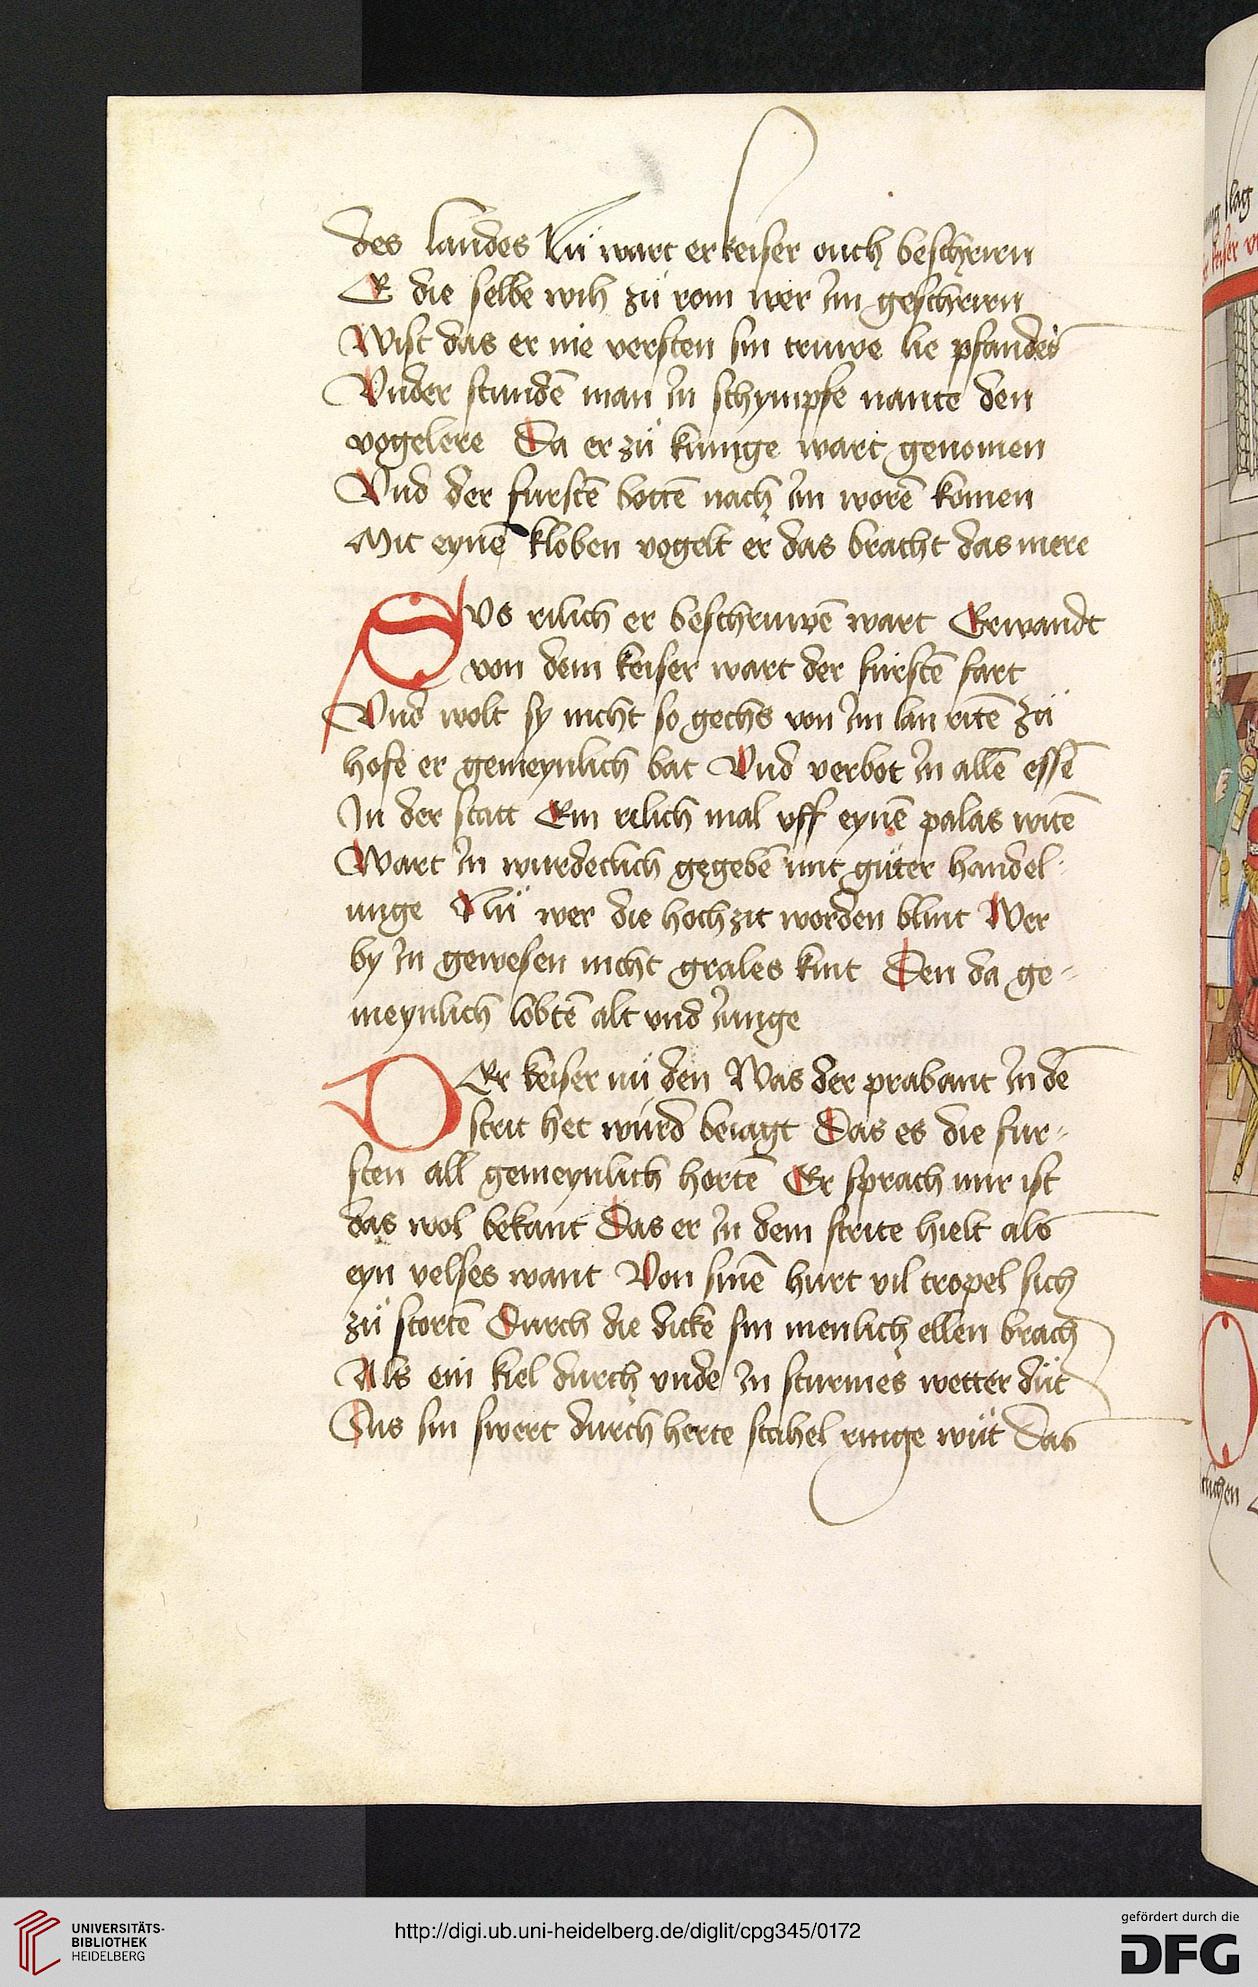 des landes Nü wart er keiser ouch beschrirn
E die selbe wih zü rom wer im geschrirn
Wist das er nie versten sin truwe lie pfandes
Vnder stundē man in schympfe nante den
vogelere Da er zü kunige wart genomen
Vnd der furstē bottē nach im worē komen
Mit eynē kloben vogelt er das bracht das mere
SVs rilich er beschruwē wart Erwandt
von dem keiser wart der furstē fart
Vnd wolt sy nicht so gechs von im lan ritē zü
hofe er gemeynlich bat Vnd verbot in allē essē
In der statt Ein rilich mal vff eynē palas witē
Wart in wurdeclich gegebē mit güter handel-
unge Nü wer die hochzit worden blint Wer
by in gewesen nicht grales kint Den da ge-
meynlich lobtē alt vnd iunge
DEr keiser nü den Was der prabant in dē
strit het würd beiagt Das es die fur-
sten all gemeynlich hortē Er sprach mir ist
das wol bekant Das er in dem strite hielt als
eyn velses want Von sinē hurt vil tropel sich
zü stortē Durch die dicke sin menlich ellen brach
Als ein kiel durch vnde in sturmes wetter düt
Sus sin swert durch herte stahel ringe wüt Das
UNIVERSITÄTS-
BIBLIOTHEK
HEIDELBERG
http://digi.ub.uni-heidelberg.de/diglit/cpg345/0172
gefördert durch die
DFG